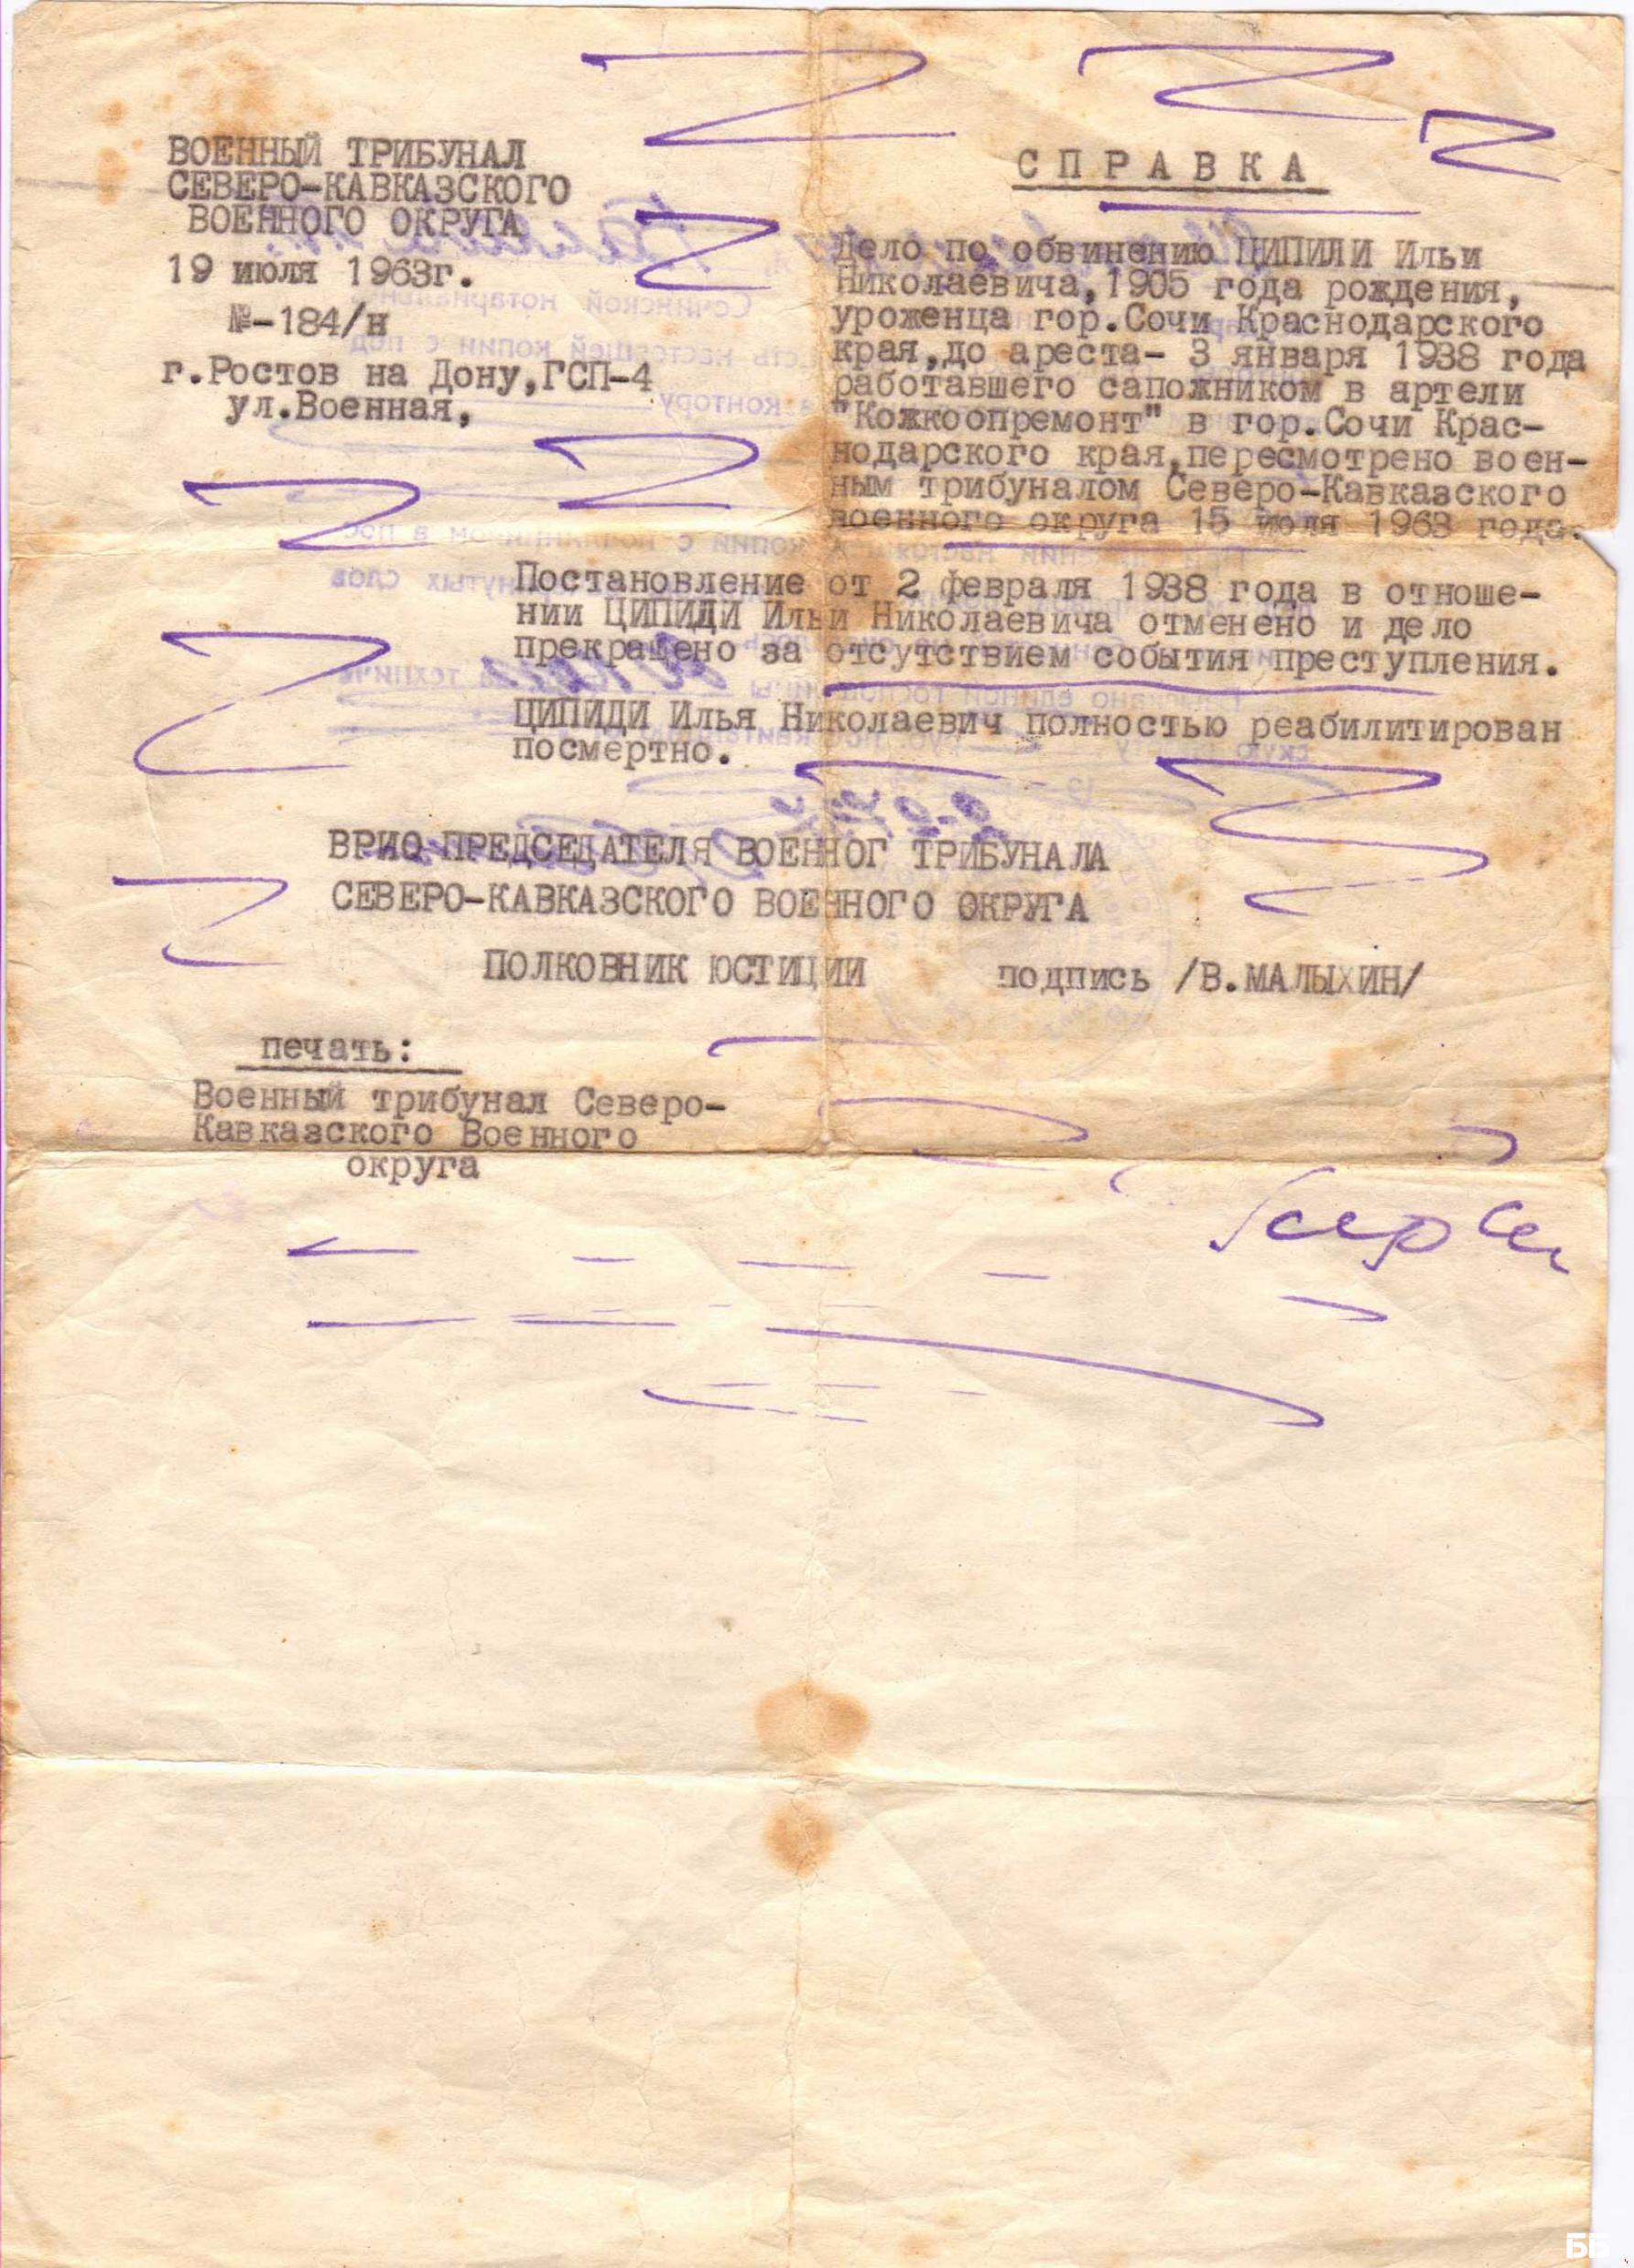 ВОЕННЫЙ ТРИБУНАЛ
СЕВЕРО-КАВКАЗСКОГО
ВОЕННОГО ОКРУГА
19 июля 1963г.
№-184/н
г.Ростов на Дону,ГСП-4
ул.Военная,
СПРАВКА
Дело по обвинению ЦИПИДИ Ильи
Николаевича,1905 года рождения,
уроженца гор.Сочи Краснодарского
края,до ареста- 3 января 1938 года
работавшего сапожником в артели
"Кожкоопремонт" в гор.Сочи Крас-
нодарского края,пересмотрено воен-
ным трибуналом Северо-Кавказского
военного округа 15 июля 1963 года.
Постановление от 2 февраля 1938 года в отноше-
нии ЦИПИДИ Ильи Николаевича отменено и дело
прекращено за отсутствием события преступления.
ЦИПИДИ Илья Николаевич полностью реабилитирован
посмертно.
ВРИО ПРЕДСЕДАТЕЛЯ ВОЕННОГ ТРИБУНАЛА
СЕВЕРО-КАВКАЗСКОГО ВОЕННОГО ОКРУГА
ПОЛКОВНИК ЮСТИЦИИ подпись /В.МАЛЫХИН/
печать:
Военный трибунал Северо-
Кавказского Военного
округа
ББ